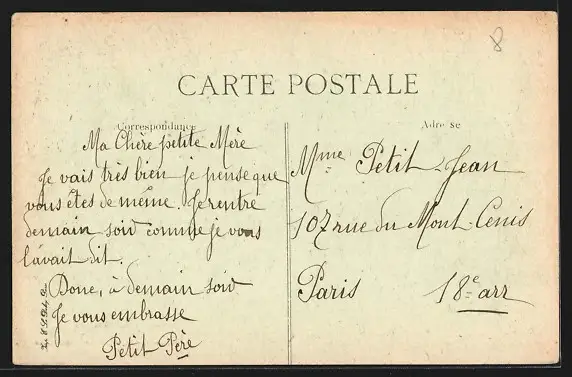 8
CARTE POSTALE
Correspondance
Adresse
Ma Chère petite Mère
Je vais très bien je pense que
vous êtes de même. Je rentre
demain soir comme je vous
l'avait dit.
Donc, à demain soir
Je vous embrasse
Petit Père
Mme Petit-Jean
107 rue du Mont-Cenis
Paris 18e arr